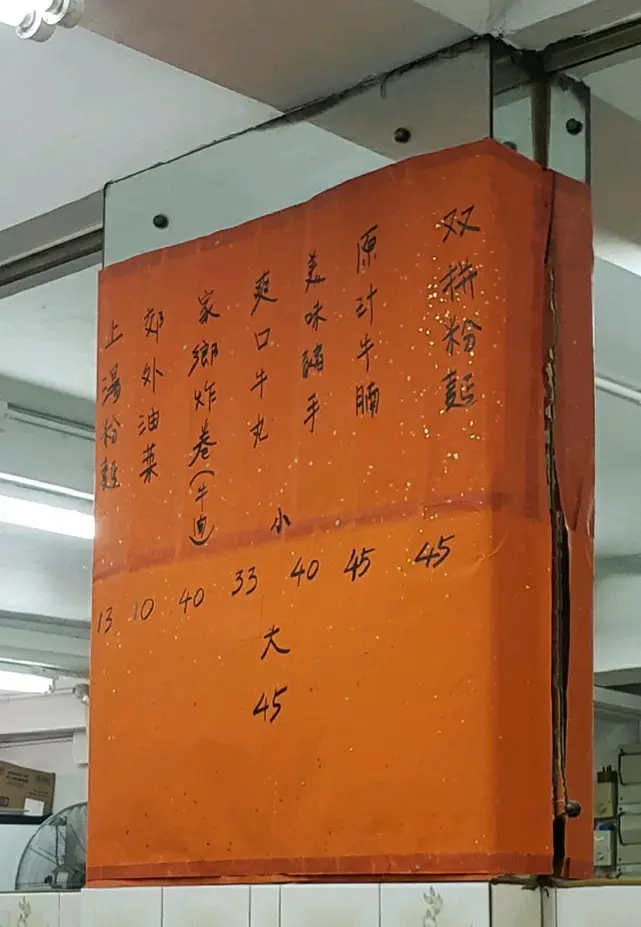 双拼粉麵
45
原汁牛腩
45
美味豬手
40
爽口牛丸
小
33
大
45
家鄉炸卷(牛迪)
40
郊外油菜
10
上湯粉麵
13